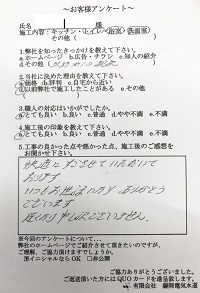 ～お客様アンケート～
氏名　　　　　　　様
施工内容：キッチン・トイレ・浴室・洗面室
その他（　　　　　　）
1.弊社を知ったきっかけを教えて下さい。
a.ホームページ b.広告・チラシ c.知人の紹介
d.その他（
2.当社に決めた理由を教えて下さい。
a.価格 b.評判 c.自宅から近い
d.以前弊社で施工したことがある e.その他
（　　　　　　）
3.職人の対応はいかがでしたか。
a.とても良い b.良い c.普通 d.やや不満 e.不満
4.施工後の印象を教えて下さい。
a.とても良い b.良い c.普通 d.やや不満 e.不満
5.工事の良かった点や悪かった点、施工後のご感想をお聞かせ下さい。
快適にすごさせていただいて
おります
いつもお世話になり ありがとう
ございます。
※今回のアンケートについて…
弊社のホームページでご紹介させて頂きたいのですが、
ご理解、ご協力頂けますでしょうか。
☑イニシャルならOK　□非公開
ご協力ありがとうございました。
ご返送頂いた方にはQUOカードを進呈致します。
有限会社　藤岡電気水道